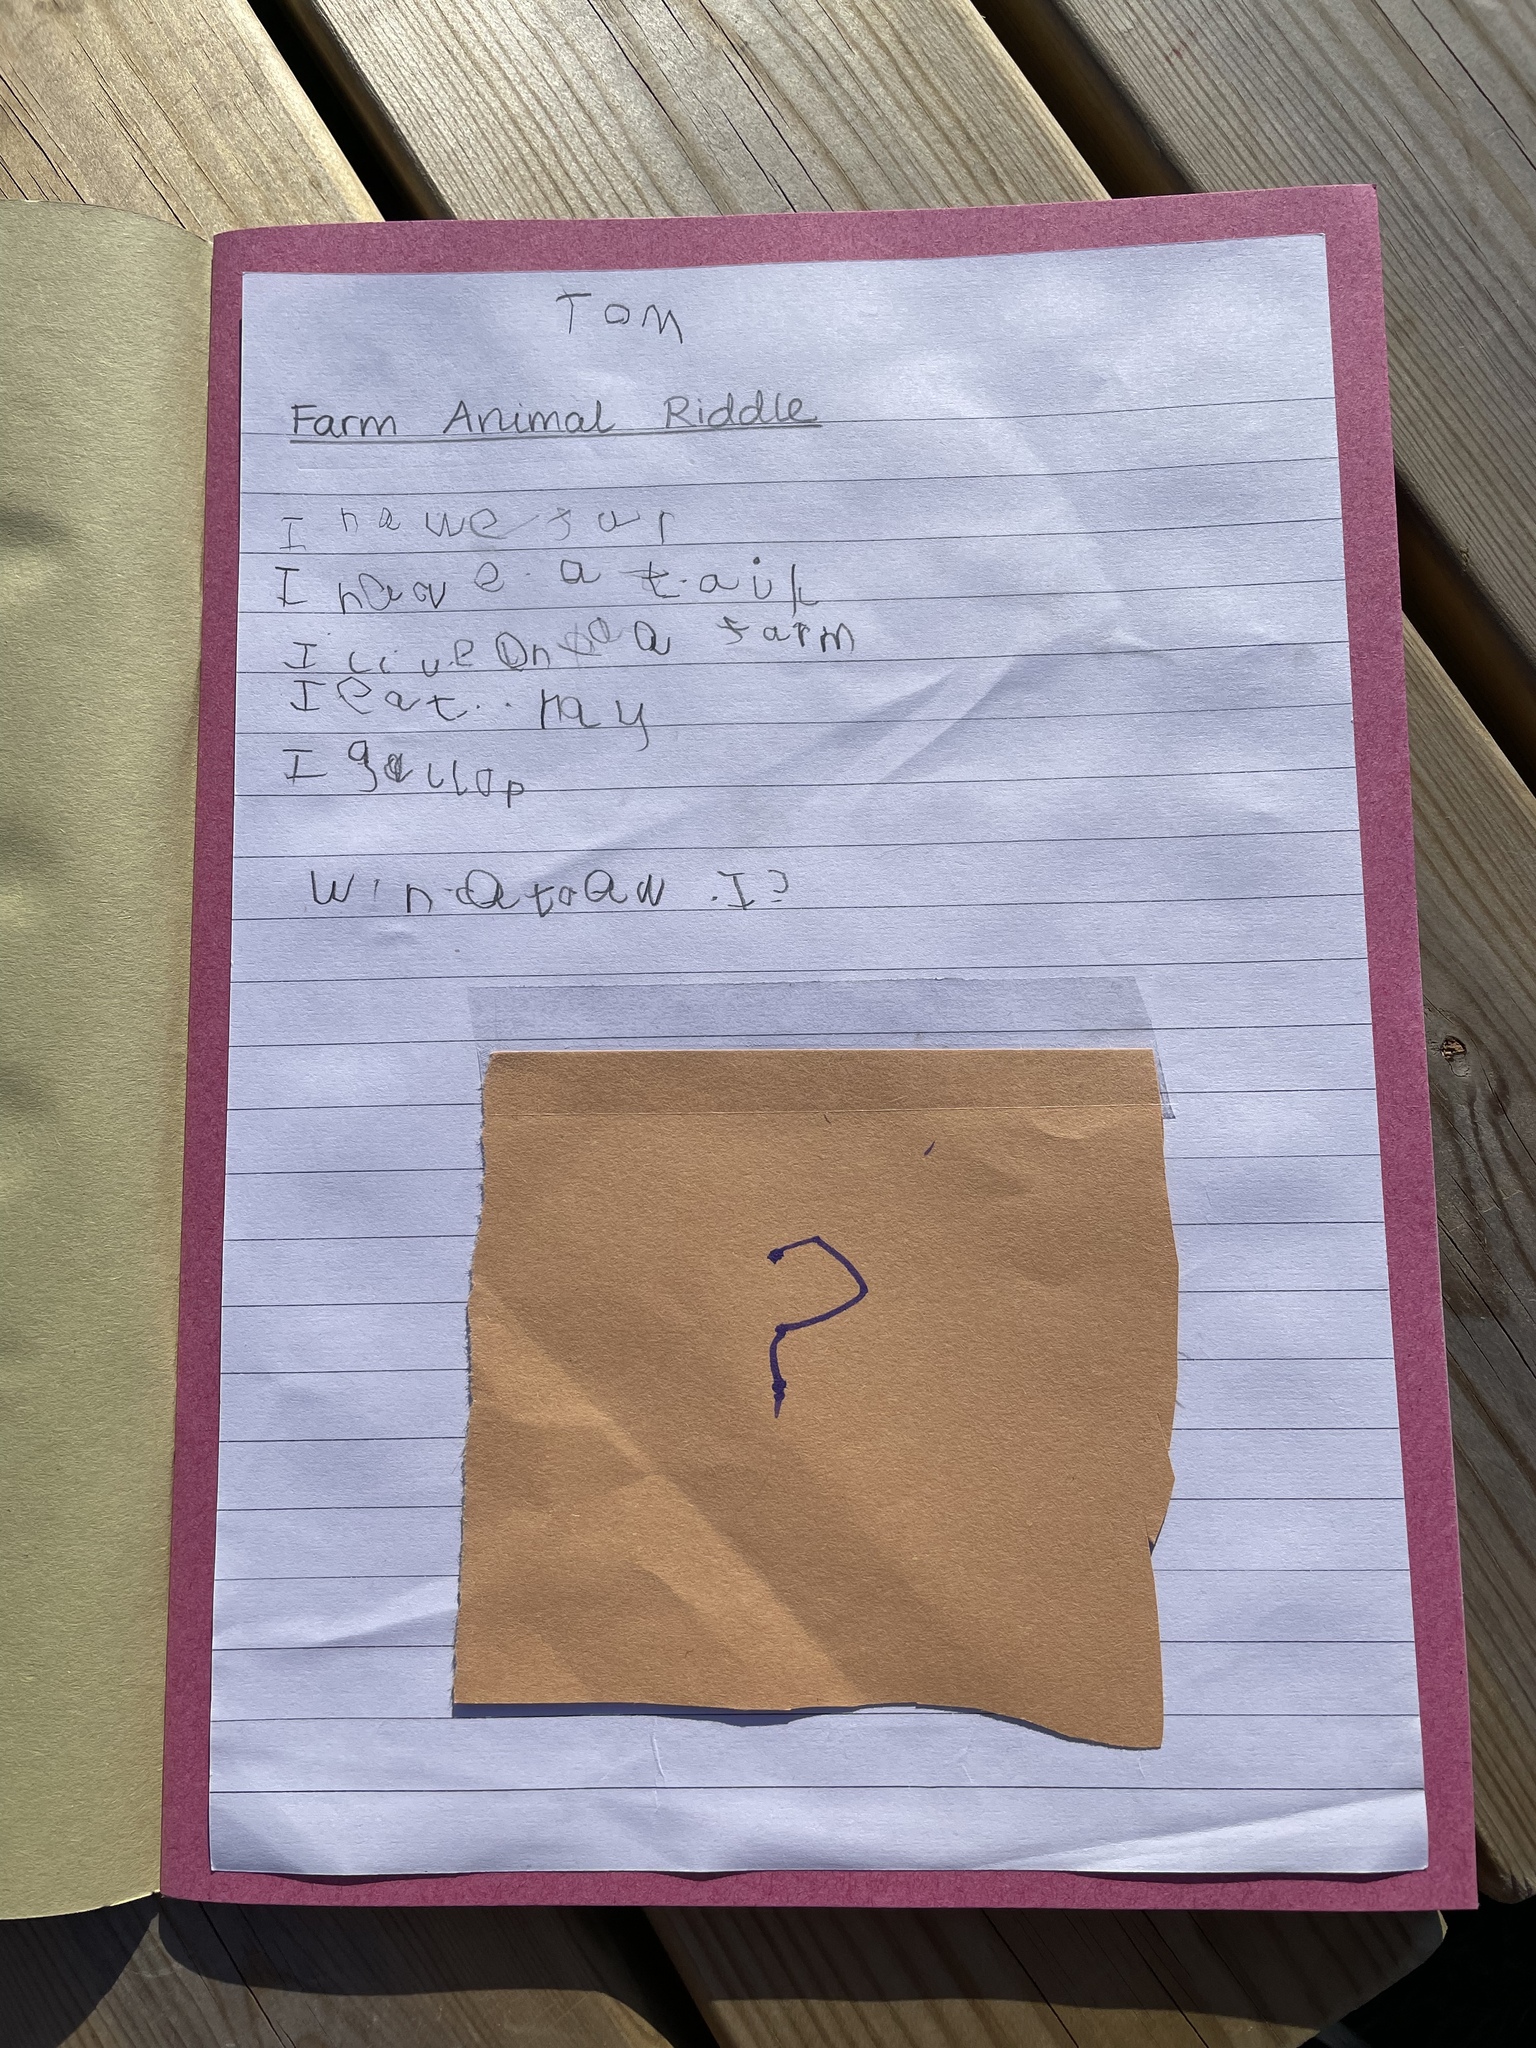 Tom
Farm Animal Riddle
I have fur
I have a tail
I live on a farm
I eat hay
I gallop
What am I?
?